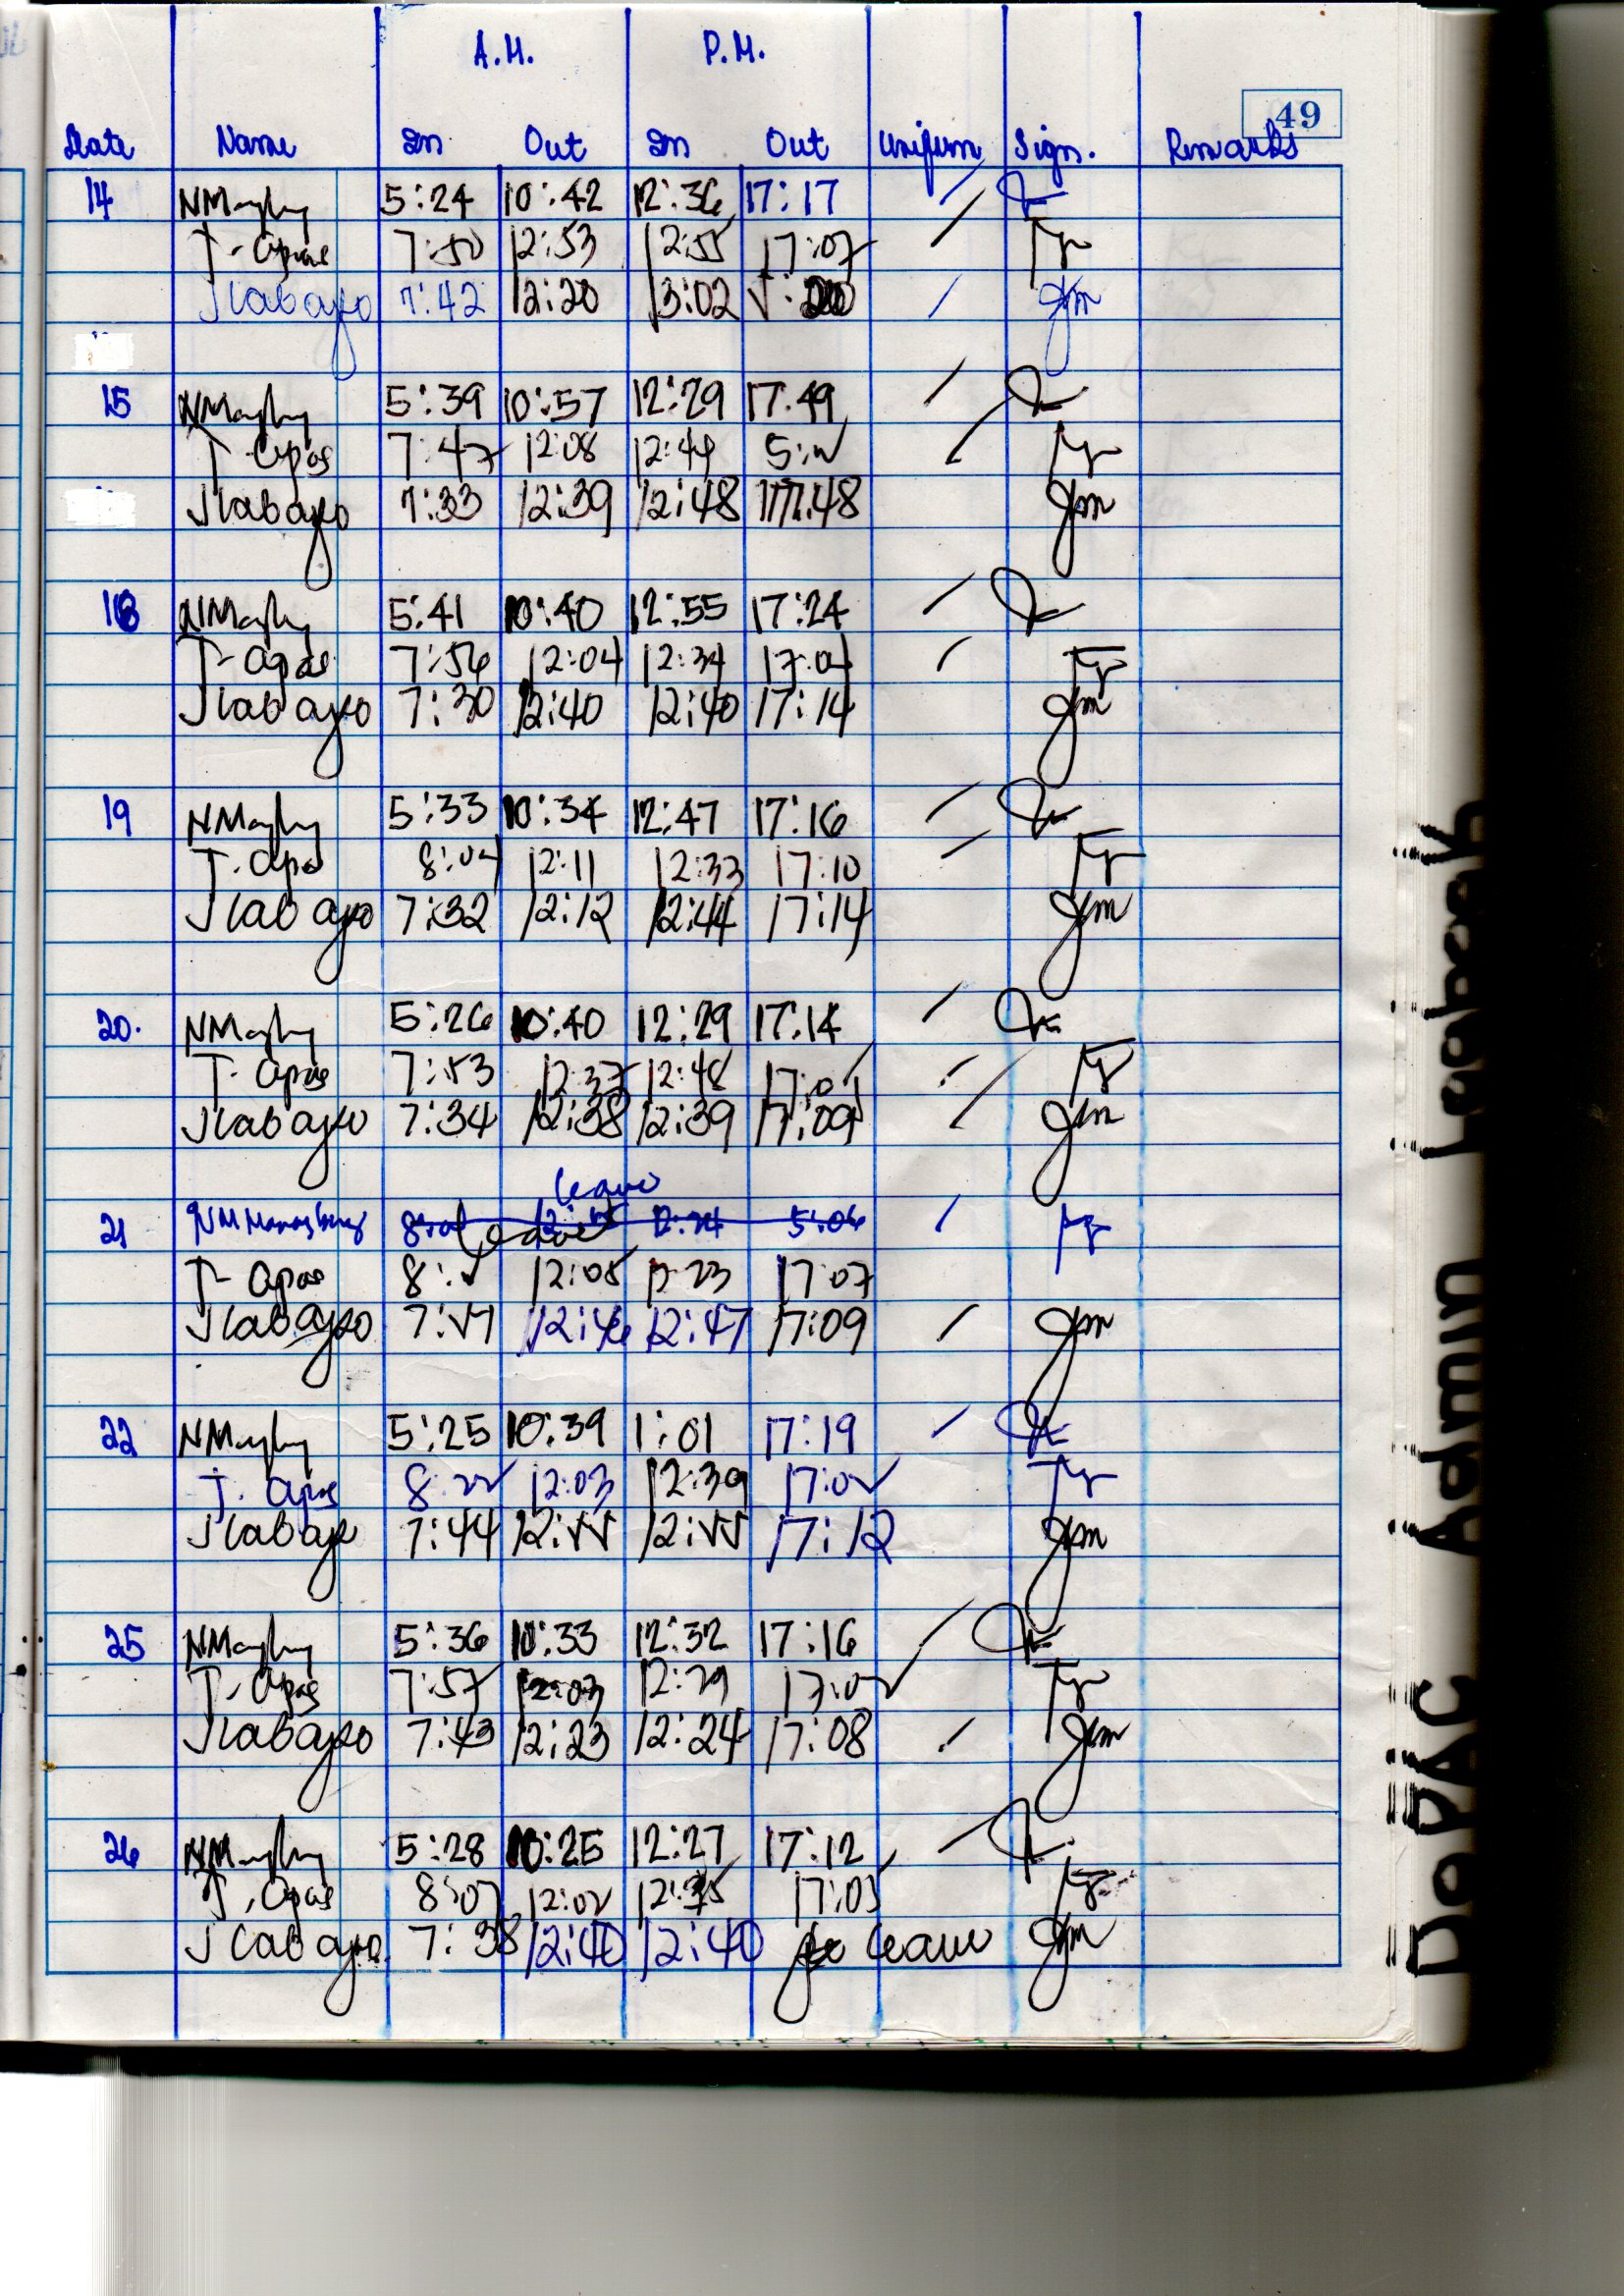 A.M. P.M.
49
Date Name In Out In Out Uniform Sign. Remarks
14 5:24 10:42 12:36 17:17
T. Apas 7:50 12:53 12:55 17:07
JLabayo 7:42 12:20 13:02
15 5:39 10:57 12:29 17:49
T. Apas 7:47 12:08 12:44
JLabayo 7:33 12:39 12:48 17:48
18 5:41 10:40 12:55 17:24
T. Apas 7:56 12:04 12:34 17:04
JLabayo 7:30 12:40 12:40 17:14
19 5:33 10:34 12:47 17:16
T. Apas 8:04 12:11 12:33 17:10
JLabayo 7:32 12:12 12:44 17:14
20. 5:26 10:40 12:29 17:14
T. Apas 7:53 12:37 12:48
JLabayo 7:34 12:38 12:39 17:09
leave
21 leave 5:06
T. Apas 12:05 17:07
JLabayo 7:57 12:46 12:47 17:09
22 5:25 10:39 1:01 17:19
T. Apas 8:22 12:03 12:39 17:02
JLabayo 7:44 12:55 12:55 17:12
25 5:36 10:33 12:32 17:16
T. Apas 7:57 12:03 12:29 17:02
JLabayo 7:43 12:23 12:24 17:08
26 5:28 10:25 12:27 17:12
T. Apas 8:07 12:02 17:03
JLabayo 7:38 12:40 12:40 leave
DoPAC Admin Logbook